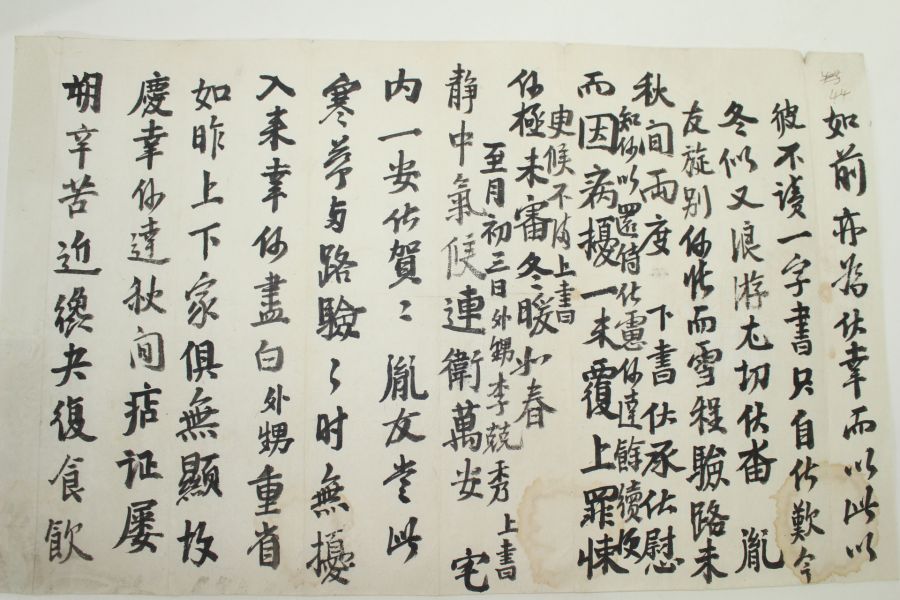 44
如前亦爲伏幸而以此以
彼不讀一字書只自伏歎今
冬似又浪游尤切伏畓 胤
友旋別仰悵而雪程驗路未
知仰以還侍伏慮仰達餘續便
更候不備上書
至月初三日外甥李兢秀 上書
秋間兩度 下書伏承伏慰
而因病擾一未覆上罪悚
仰極未審冬暖如春
靜中氣候連衛萬安 宅
內一安伏賀〻胤友當此
寒 與路驗〻時無擾
入來幸仰盡白外甥重省
如昨上下家俱無顯故
慶幸仰達秋間痁证屢
朔辛苦近纔夬復食飮